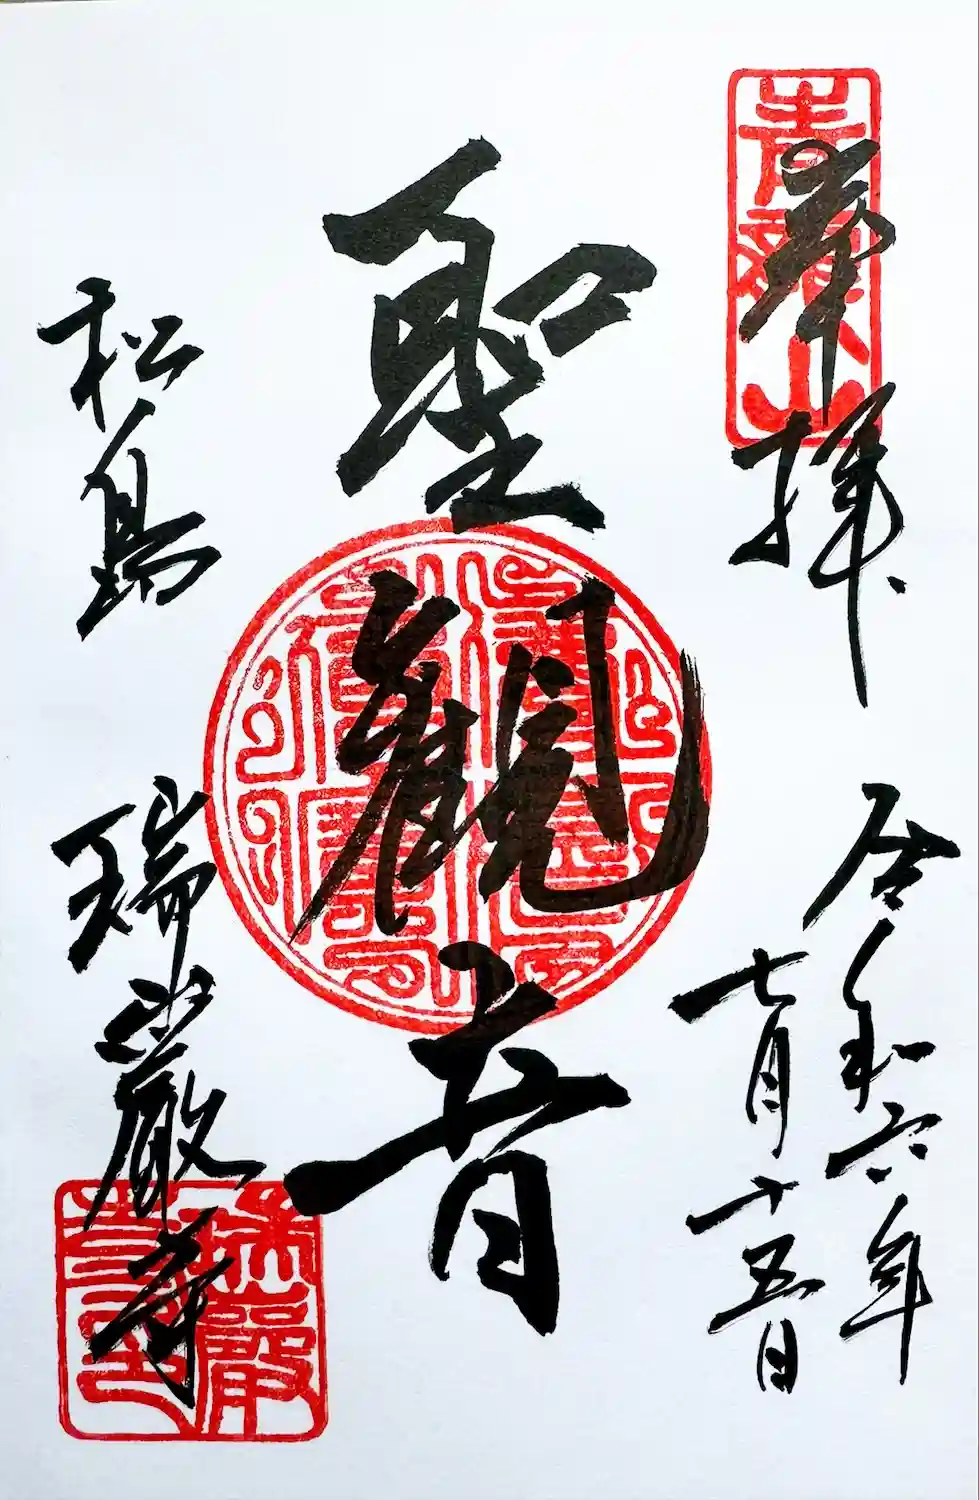 奉拝
令和六年
七月十五日
聖観音
松島
瑞巌寺
青龍山